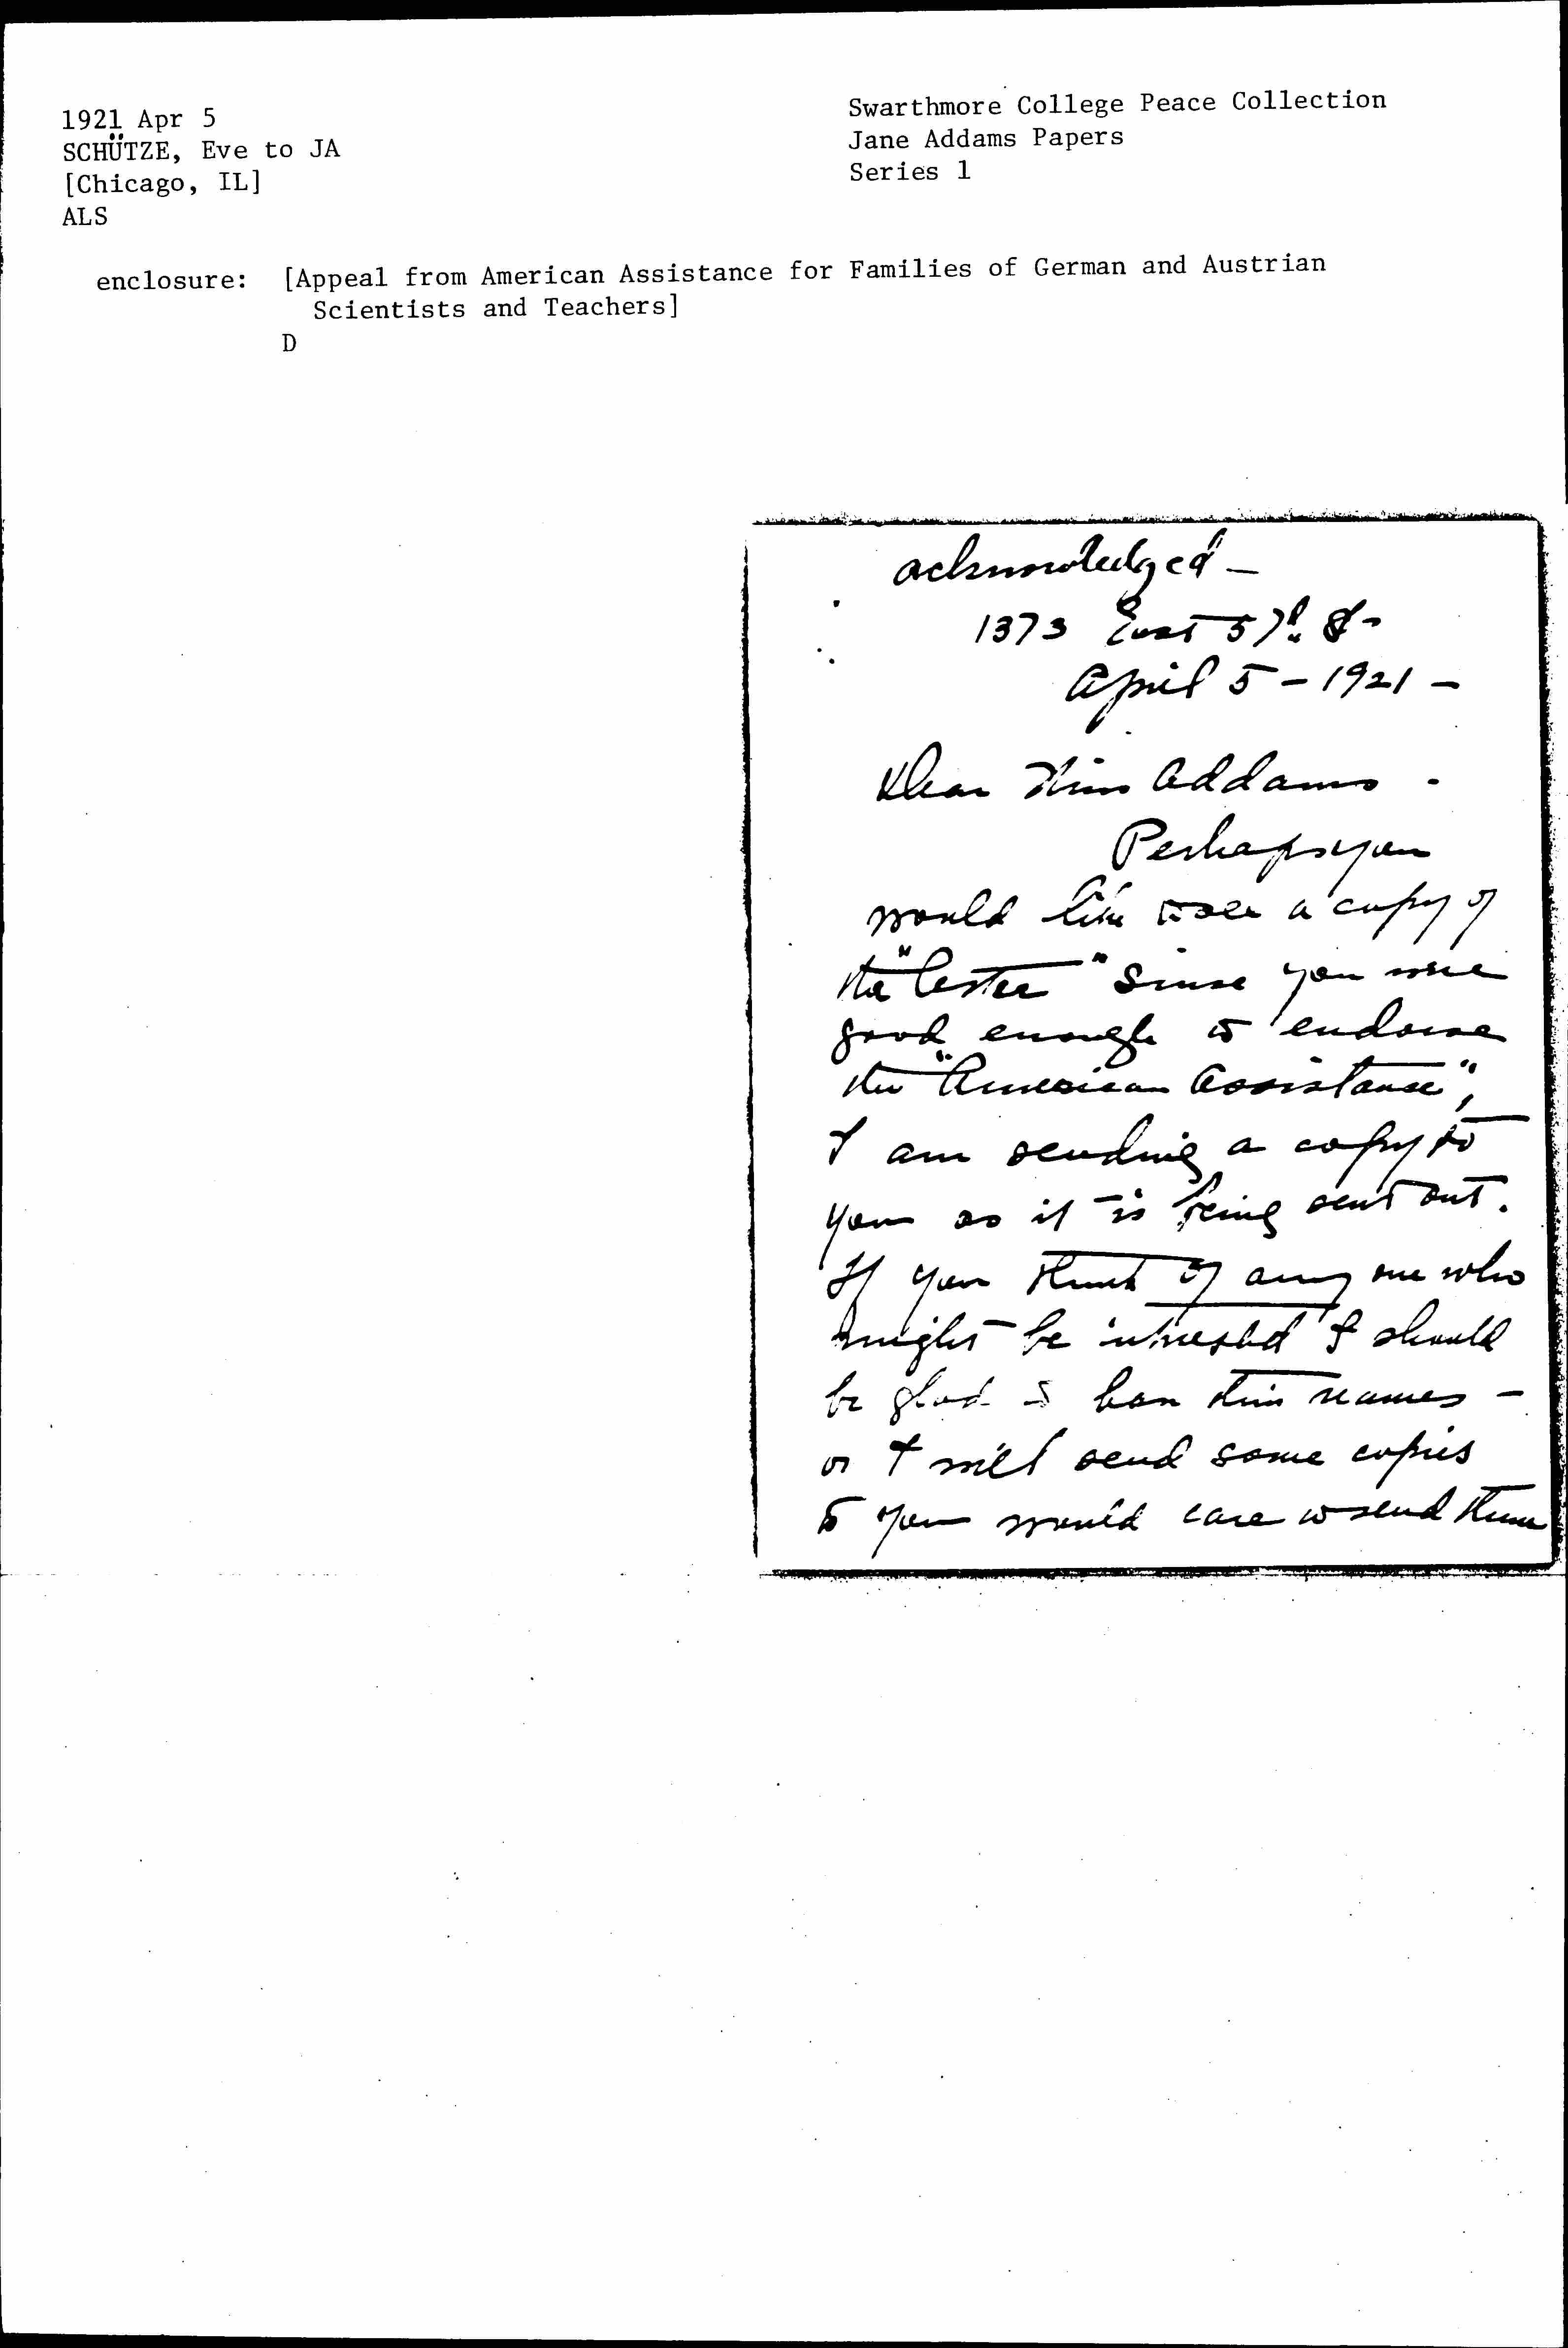 1921 Apr 5
SCHÜTZE, Eve to JA
[Chicago, IL]
ALS
Swarthmore College Peace Collection
Jane Addams Papers
Series 1
enclosure: [Appeal from American Assistance for Families of German and Austrian
Scientists and Teachers]
D
acknowledged -
1373 East 57th St -
April 5 - 1921 -
Dear Miss Addams -
Perhaps you
would like to see a copy of
the "letter" since you were
good enough to endorse
the "American Assistance",
I am sending a copy to
you as it is being sent out.
If you think of any one who
might be interested I should
be glad to have their names -
or I will send some copies
to you would care to send them